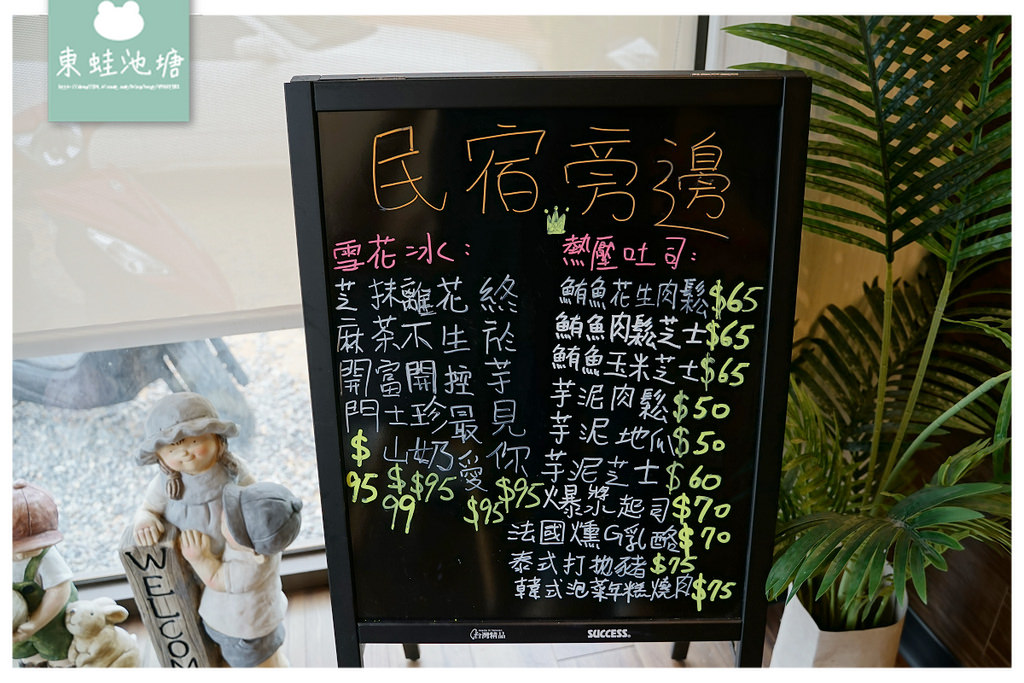 東蛙池塘
民宿旁邊
雪花冰：
芝麻開門 $95
抹茶富士山 $99
離不開珍奶 $95
花生撞最愛 $95
終於芋見你 $95
熱壓吐司：
鮪魚花生肉鬆 $65
鮪魚肉鬆芝士 $65
鮪魚玉米芝士 $65
芋泥肉鬆 $50
芋泥地瓜 $50
芋泥芝士 $60
爆漿起司 $70
法國燻G乳酪 $70
泰式打拋豬 $75
韓式泡菜年糕燒肉 $75
台灣精品
SUCCESS.
WELCOM